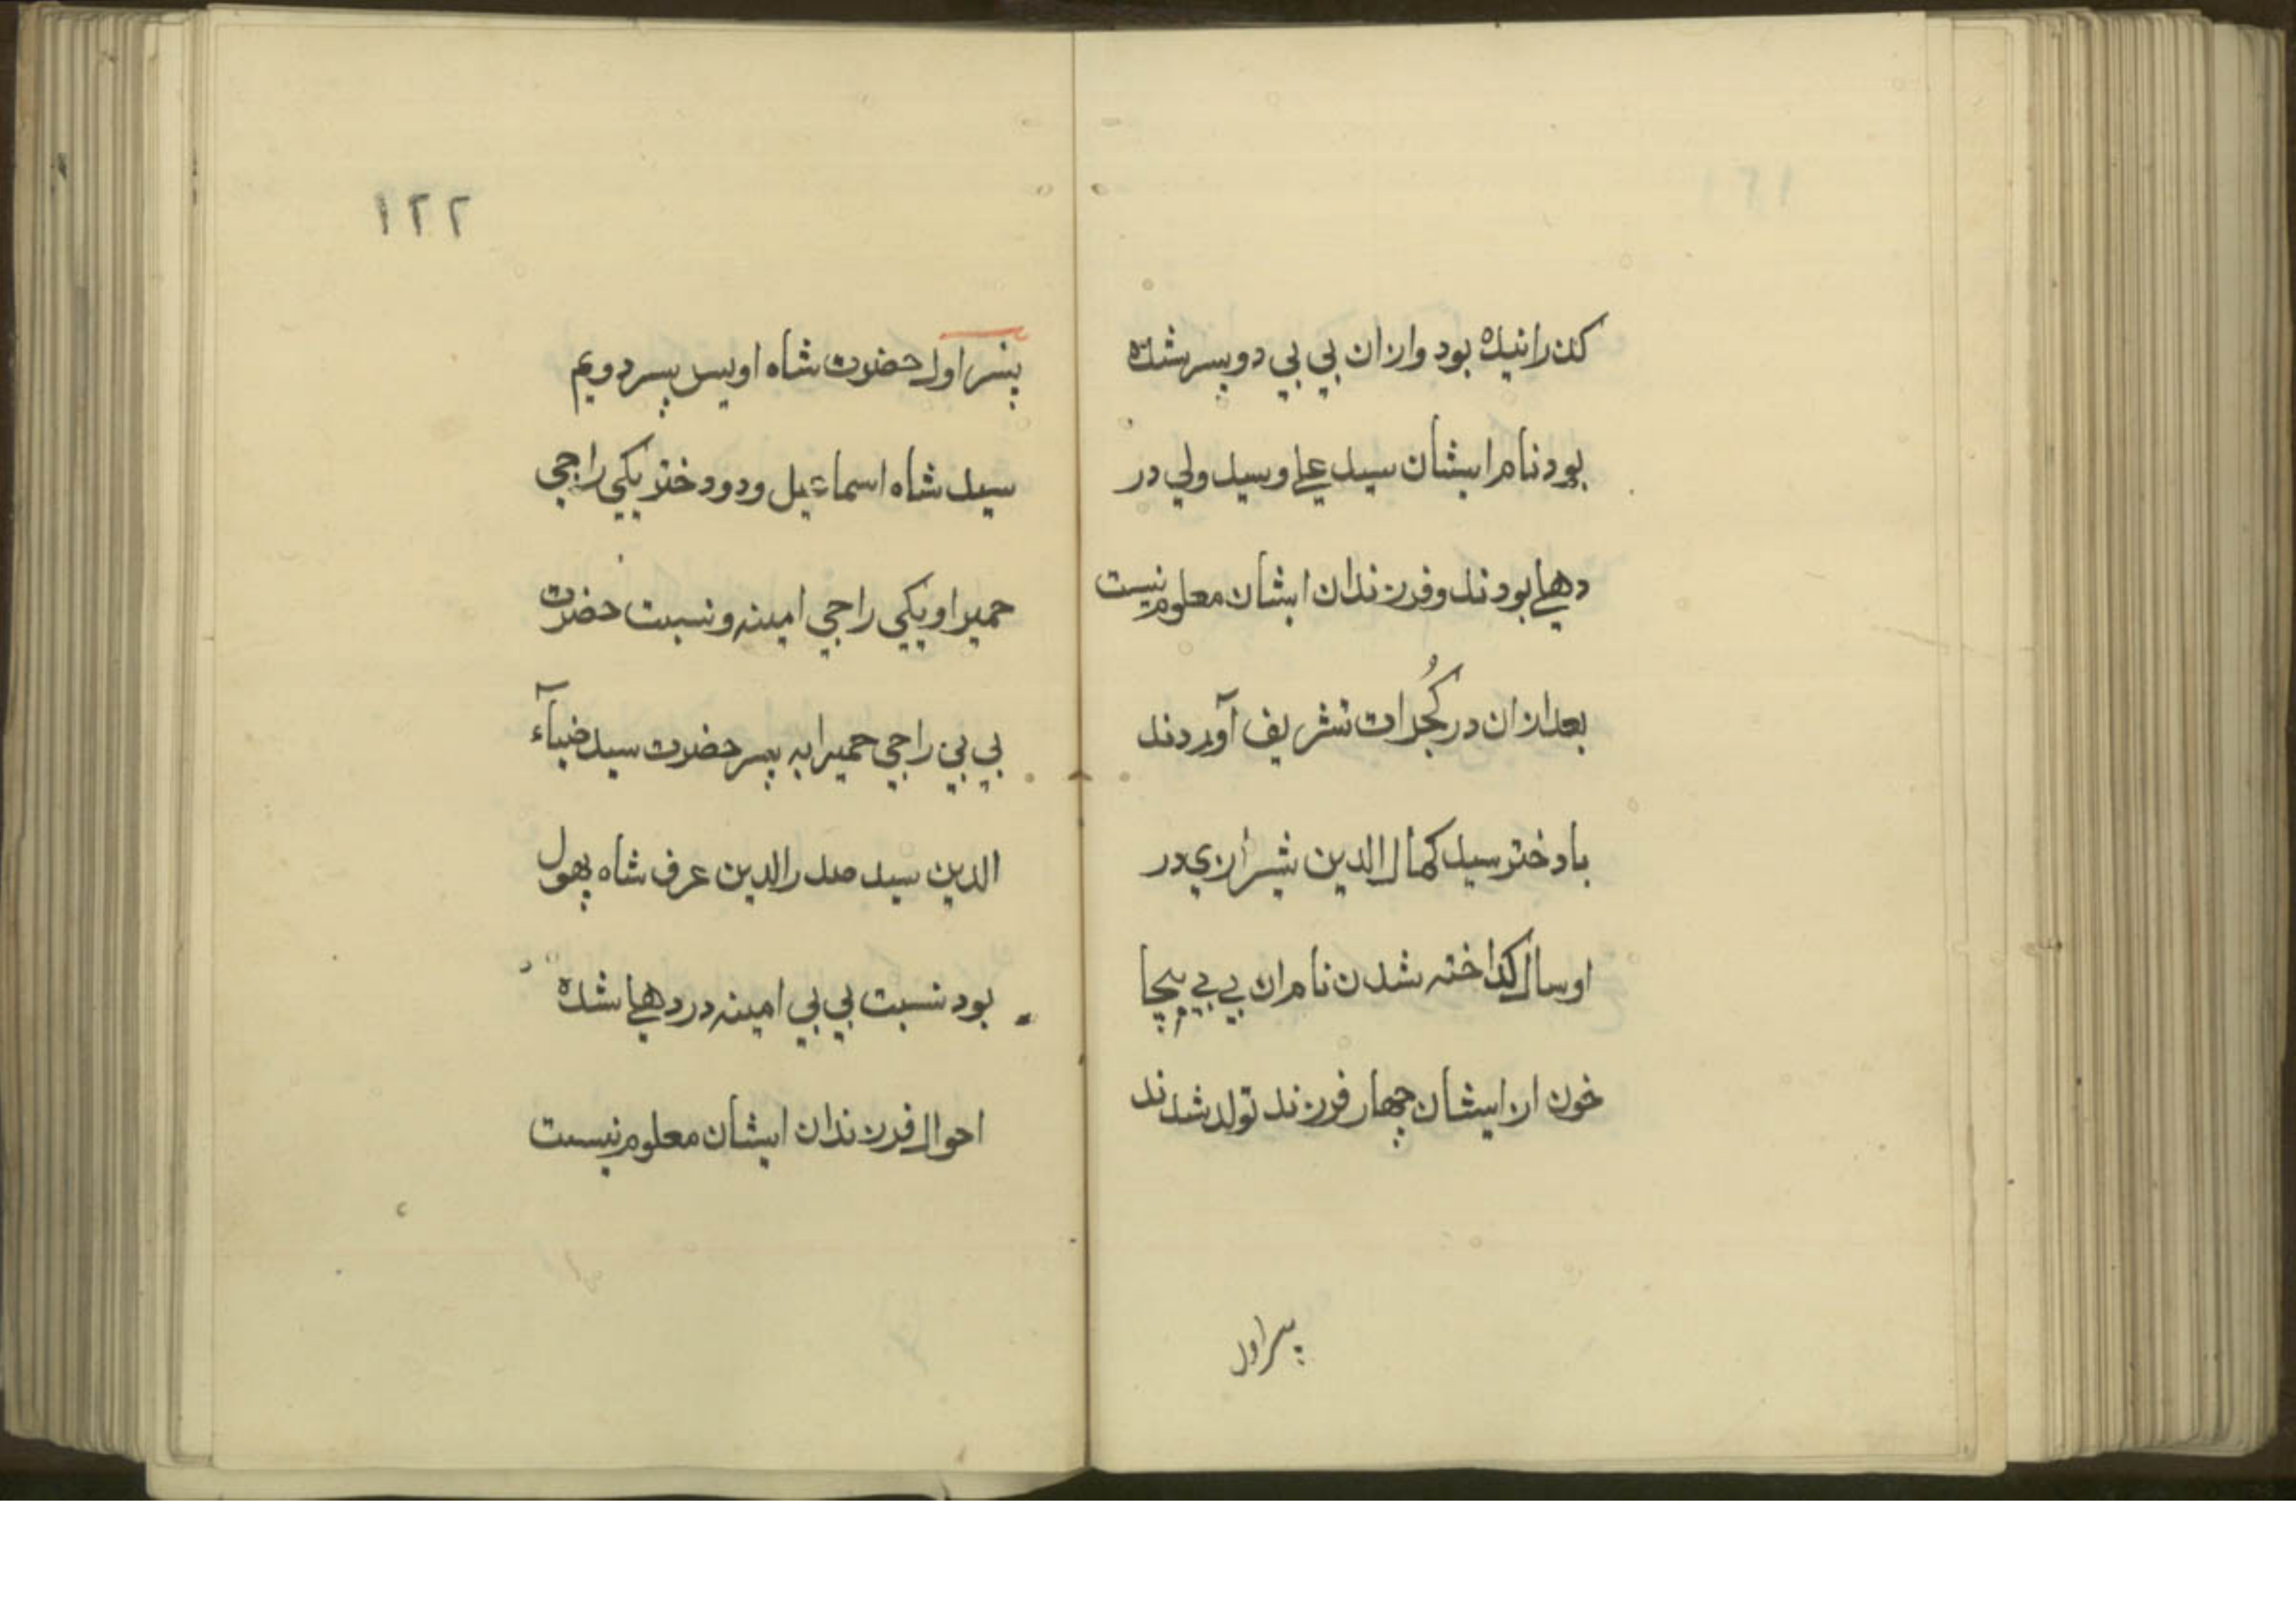 کذرانیده بود وازان بي بي دو پسر شده
بود نام ایشان سید علي و سید ولي در
دهلي بودند و فرزندان ایشان معلوم نیست
بعد ازان در کُجرات تشریف آوردند
با دختر سید کمال الدین شیرازي در
او سال کداخته شدن نام ان بي بي
خون ازایشان چهار فرزند تولد شدند
پسر اول
۱۲۲
پسر اول حضرت شاه اویس پسر دویم
سید شاه اسماعیل و دو دختر یکي راجي
حمیرا ویکي راجي امینه و نسبت حضرت
بي بي راجي حمیرا به پسر حضرت سید ضیآء
الدین سید صدر الدین عرف شاه پهول
بود نسبت بي بي امینه در دهلي شده
احوال فرزندان ایشان معلوم نیست